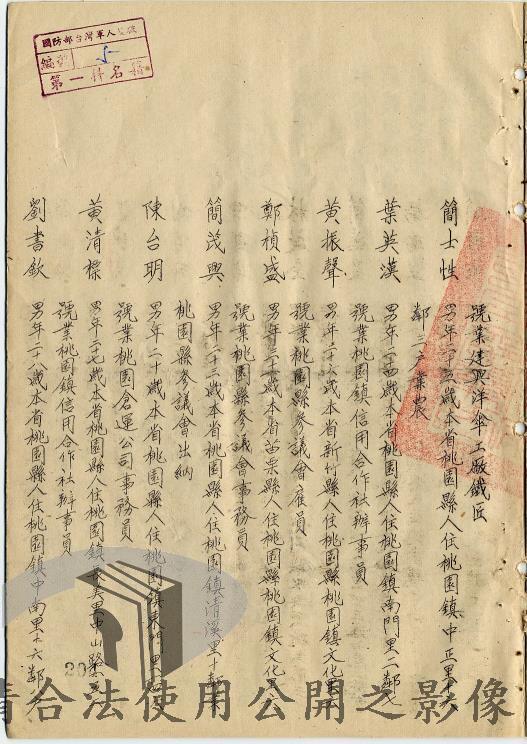 號業建興洋傘工廠鐵匠
簡士性 男年二十五歲本省桃園縣人住桃園鎮中正里十六
鄰三六業農
葉英漢 男年二四歲本省桃園縣人住桃園鎮南門里二鄰
號業桃園鎮信用合作社辦事員
黃振聲 男年二十六歲本省新竹縣人住桃園縣桃園鎮文化里
號業桃園縣參議會雇員
鄭楨盛 男年三十歲本省苗栗縣人住桃園縣桃園鎮文化里
號業桃園縣參議會事務員
簡茂興 男年二十三歲本省桃園縣人住桃園鎮清溪里十鄰
桃園縣參議會出納
陳台明 男年二十歲本省桃園縣人住桃園鎮東門里
號業桃園倉運公司事務員
黃清標 男年二七歲本省桃園縣人住桃園鎮長美里中山路
號業桃園鎮信用合作社辦事員
劉書欽 男年二十八歲本省桃園縣人住桃園鎮中南里十六鄰
國防部台灣軍人監獄
編號
第一件名籍
20
請合法使用公開之影像